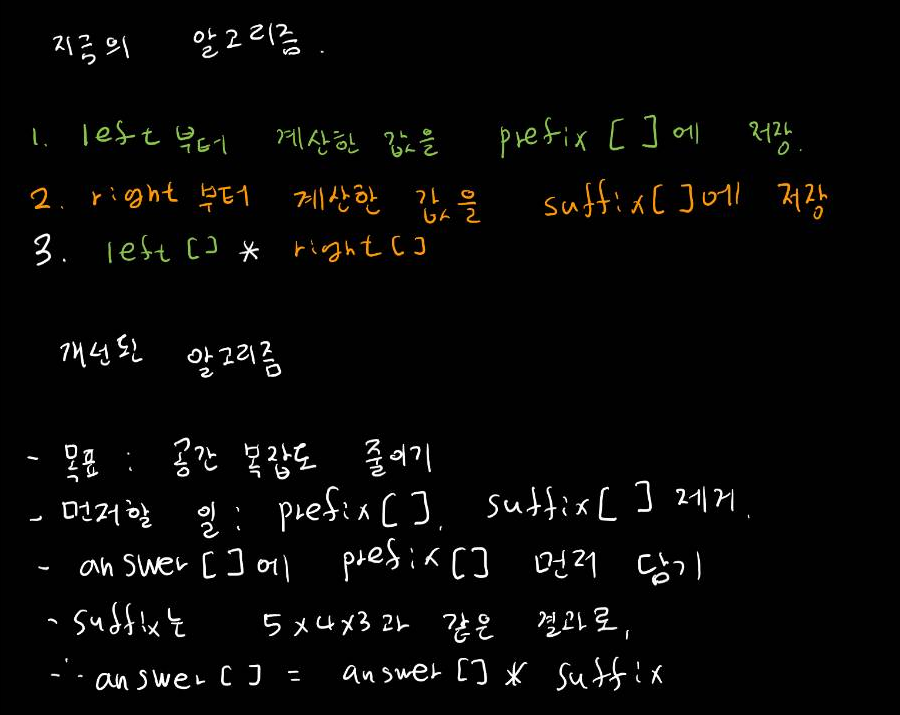 지금의 알고리즘.
1. left 부터 계산한 값을 prefix [ ] 에 저장.
2. right 부터 계산한 값을 suffix[ ]에 저장
3. left [ ] * right [ ]
개선된 알고리즘
- 목표 : 공간 복잡도 줄이기
- 먼저할 일 : prefix [ ], suffix [ ] 제거.
- answer [ ] 에 prefix [ ] 먼저 담기
- suffix는 5 x 4 x 3 과 같은 결과로,
-∴ answer [ ] = answer [ ] * suffix